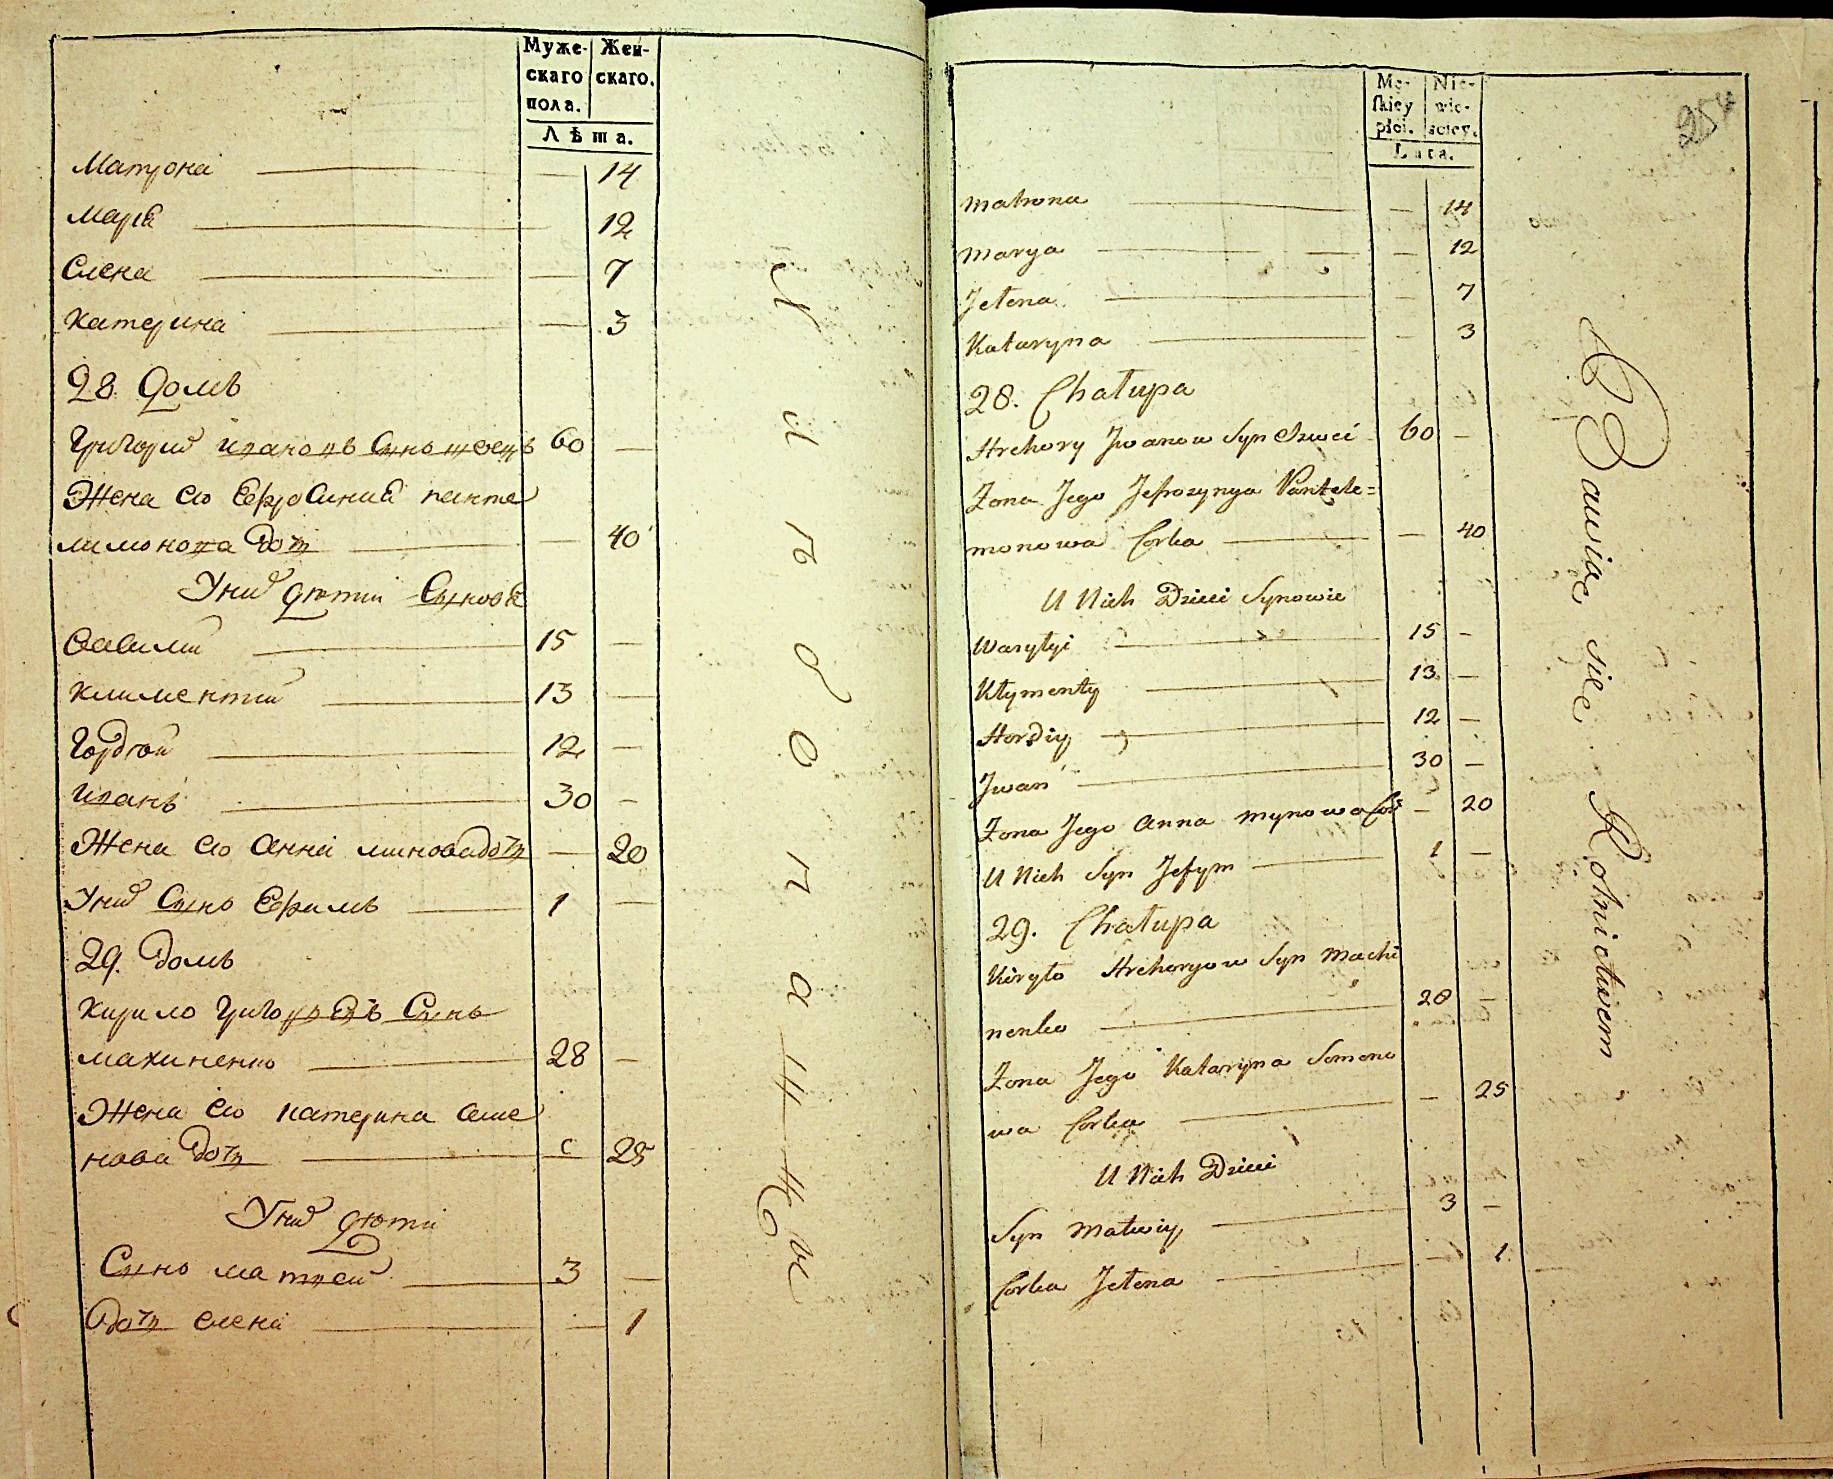 Муже- Жен-
скаго скаго.
пола.
Лѣта.
Матрона — 14
Марія 12
Елена — 7
Катерина — 3
28. Домъ
Григорий Ивановъ Сынъ швецъ 60 —
Жена Его Ефросиния панте
лимонова дочь — 40
У них дѣти Сыновя
Васили 15 —
Климентий 13 —
Гордѣй 12 —
Иванъ 30 —
Жена Его Анна минова дочь — 20
У них Сынъ Ефимъ 1 —
29. Домъ
Кирило Григорьевъ Сынъ
махиненко 28 —
Жена Его Катерина Семе
нова дочь 25
У них дѣти
Сынъ матвей 3 —
Дочь елена — 1
Хлѣбопашцы
Mę- Nie-
skiey wie-
płci. sciey.
Lata.
254
Matrona — 14
Marya — 12
Jełena — 7
Kataryna — 3
28. Chałupa
Hrehory Jwanow Syn Szweć 60 —
Zona Jego Jefrozynya Pantele=
monowa Corka — 40
U Nich Dzieci Synowie
Wasylyi 15 —
Kłymenty 13 —
Hordiy 12 —
Jwan 30 —
Zona Jego Anna Mynowa Cor — 20
U Nich Syn Jefym 1 —
29. Chałupa
Kiryło Hrehoryow Syn Machi
nenko 28 —
Zona Jego Kataryna Semeno
wa Corka — 25
U Nich Dzieci
Syn Matwiy 3 —
Corka Jełena 1
Bawiąc się Rolnictwem